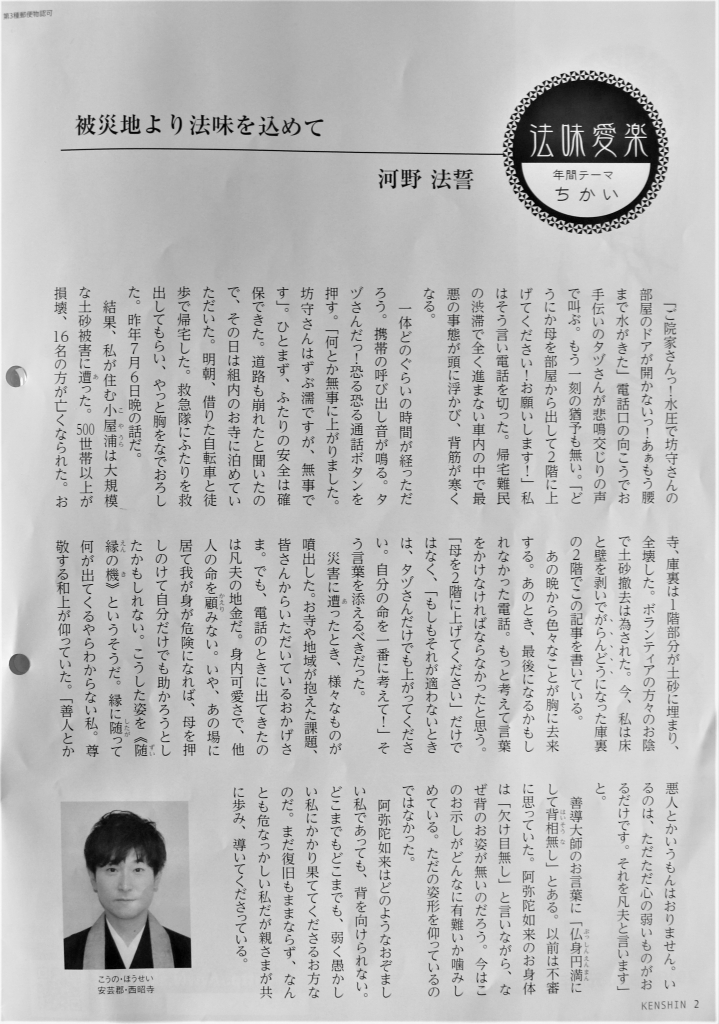 第3種郵便物認可
法味愛楽
年間テーマ
ちかい
被災地より法味を込めて
河野 法誓
「ご院家さんっ!水圧で坊守さんの
部屋のドアが開かないっ!あぁもう腰
まで水がきた」電話口の向こうでお
手伝いのタヅさんが悲鳴交じりの声
で叫ぶ。もう一刻の猶予も無い。「ど
うにか母を部屋から出して2階に上
げてください!お願いします!」私
はそう言い電話を切った。帰宅難民
の渋滞で全く進まない車内の中で最
悪の事態が頭に浮かび、背筋が寒く
なる。
一体どのぐらいの時間が経っただ
ろう。携帯の呼び出し音が鳴る。タ
ヅさんだっ!恐る恐る通話ボタンを
押す。「何とか無事に上がりました。
坊守さんはずぶ濡ですが、無事で
す」。ひとまず、ふたりの安全は確
保できた。道路も崩れたと聞いたの
で、その日は組内のお寺に泊めてい
ただいた。明朝、借りた自転車と徒
歩で帰宅した。救急隊にふたりを救
出してもらい、やっと胸をなでおろし
た。昨年7月6日晩の話だ。
結果、私が住む小屋浦は大規模
な土砂被害に遭った。500世帯以上が
損壊、16名の方が亡くなられた。お
寺、庫裏は1階部分が土砂に埋まり、
全壊した。ボランティアの方々のお陰
で土砂撤去は為された。今、私は床
と壁を剥いでがらんどうになった庫裏
の2階でこの記事を書いている。
あの晩から色々なことが胸に去来
する。あのとき、最後になるかもし
れなかった電話。もっと考えて言葉
をかけなければならなかったと思う。
「母を2階に上げてください」だけで
はなく、「もしもそれが適わないとき
は、タヅさんだけでも上がってくださ
い。自分の命を一番に考えて!」そ
う言葉を添えるべきだった。
災害に遭ったとき、様々なものが
噴出した。お寺や地域が抱えた課題、
皆さんからいただいているおかげさ
ま。でも、電話のときに出てきたの
は凡夫の地金だ。身内可愛さで、他
人の命を顧みない。いや、あの場に
居て我が身が危険になれば、母を押
しのけて自分だけでも助かろうとし
たかもしれない。こうした姿を《随
縁の機》というそうだ。縁に随って
何が出てくるやらわからない私。尊
敬する和上が仰っていた。「善人とか
悪人とかいうもんはおりません。い
るのは、ただただ心の弱いものがお
るだけです。それを凡夫と言います」
と。
善導大師のお言葉に「仏身円満に
して背相無し」とある。以前は不審
に思っていた。阿弥陀如来のお身体
は「欠け目無し」と言いながら、な
ぜ背のお姿が無いのだろう。今はこ
のお示しがどんなに有難いか噛みし
めている。ただの姿形を仰っているの
ではなかった。
阿弥陀如来はどのようなおぞまし
い私であっても、背を向けられない。
どこまでもどこまでも、弱く愚かし
い私にかかり果ててくださるお方な
のだ。まだ復旧もままならず、なん
とも危なっかしい私だが親さまが共
に歩み、導いてくださっている。
こうの・ほうせい
安芸郡・西昭寺
KENSHIN 2